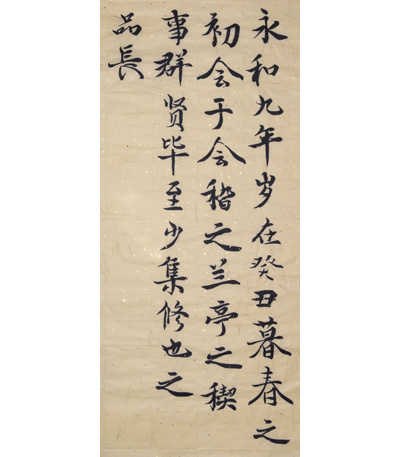 永和九年岁在癸丑暮春之
初会于会稽之兰亭之禊
事群贤毕至少集修也之
品長